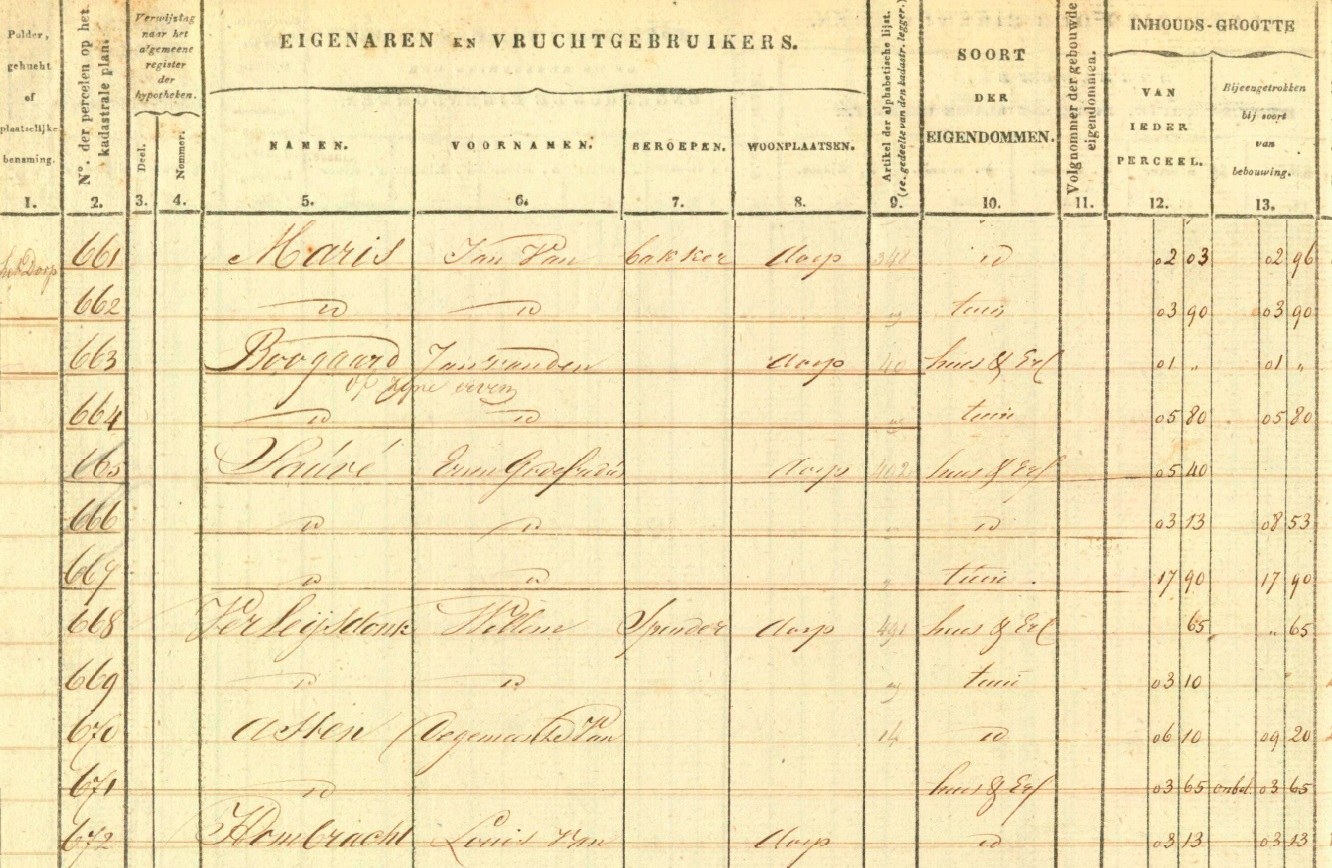 Polder, gehucht of plaatselijke benaming.
N°. der percelen op het kadastrale plan.
Verwijzing naar het algemeene register der hypotheken.
Deel. Nommer.
EIGENAREN EN VRUCHTGEBRUIKERS.
NAMEN. VOORNAMEN. BEROEPEN. WOONPLAATSEN.
Artikel der alphabetische lijst. (1e. gedeelte van den kadastr. legger.)
SOORT DER EIGENDOMMEN.
Volgnommer der gebouwde eigendommen.
INHOUDS-GROOTTE
VAN IEDER PERCEEL.
Bijeengetrokken bij soort van bebouwing.
1. 2. 3. 4. 5. 6. 7. 8. 9. 10. 11. 12. 13.
het Dorp 661 Maris Jan Van bakker dorp 341 id 02 03 02 96
662 id id tuin 03 90 03 90
663 Boogaard Jan van den dorp 40 huis & Erf 01 „ 01 „
of zijne erven
664 id id tuin 05 80 05 80
665 Sauvé dorp 402 huis & Erf 05 40
666 id id id 03 13 08 53
667 id id tuin 17 90 17 90
668 Verleijsdonk Willem dorp 491 huis & Erf 65 „ 65
669 id id tuin 03 10
670 Asten De gemeente Van 14 id 06 10 09 20
671 id huis & Erf 03 65 onbel. 03 65
672 Hombracht Louis Van dorp id 03 13 03 13